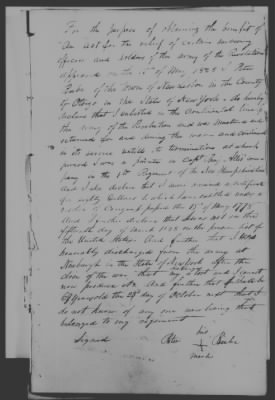 For the purpose of obtaining the benefit of
"An act for the relief of certain surviving
officers and soldiers of the army of the Revolution"
approved on the 15th of May 1828 I Peter
of the Town of in the County
of Otsego in the State of New York do hereby
declare that I enlisted in the Continental line of
the army of the Revolution and was
returned for and during the war and continued
in its service untill its termination at which
period I was a private in Capt
pany in the 1st Regiment of the New Hampshire line
And I also declare that I ever received a certificate
for eighty dollars to which I was entitled under a
resolve of Congress passed the 15th of May 1778
And I further declare that I was not on the
fifteenth day of March 1828 on the pension list of
the United States. And further that I was
honorably discharged from the army at
Newburgh in the State of New York after the
close of the war that my discharge is lost and I cannot
now produce it. And further that I shall be
years old the day of October next that I
do not know of any one now living that
belonged to my regiment
Signed Peter his
+
mark